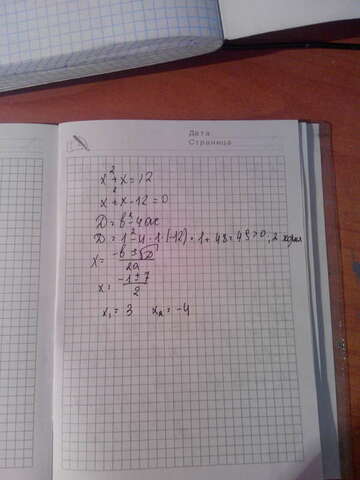 Дата
Страница
x²+x=12
x²+x-12=0
D=b²-4ac
D=1²-4·1·(-12)=1+48=49>0, 2 корня
x=(-b±√D)/2a
x=(-1±7)/2
x₁=3 x₂=-4